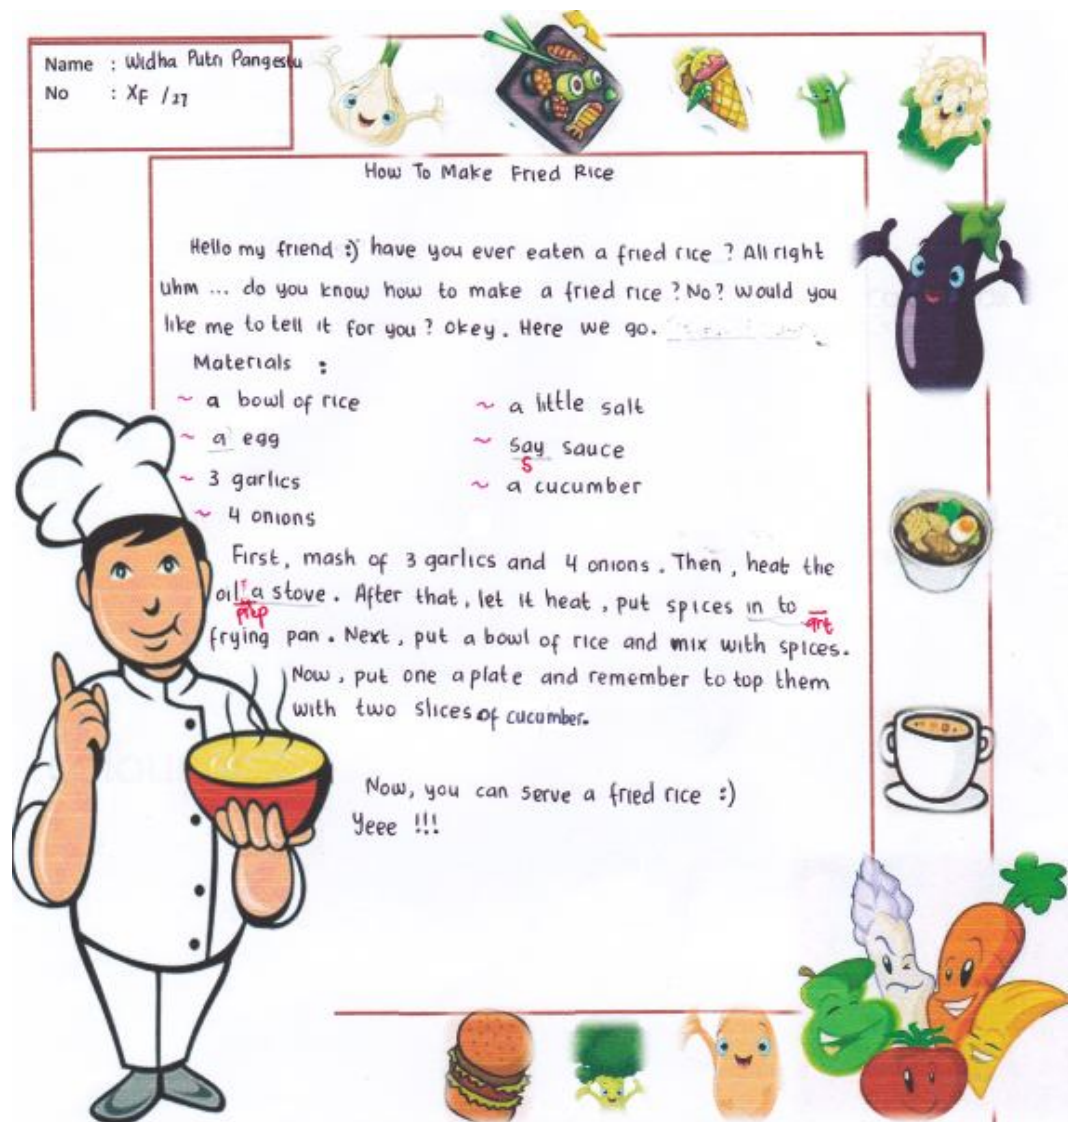 Name : Widha Putri Pangestu
No : XF /27
How To Make Fried Rice
Hello my friend :) have you ever eaten a fried rice ? All right
uhm ... do you know how to make a fried rice ? No ? Would you
like me to tell it for you ? Okey . Here we go.
Materials :
~ a bowl of rice
~ a egg
~ 3 garlics
~ 4 onions
~ a little salt
~ say sauce
S
~ a cucumber
First, mash of 3 garlics and 4 onions . Then , heat the
oil a stove . After that , let it heat , put spices in to
prep
art
frying pan . Next , put a bowl of rice and mix with spices .
Now , put one a plate and remember to top them
with two slices of cucumber.
Now, you can serve a fried rice :)
Yeee !!!